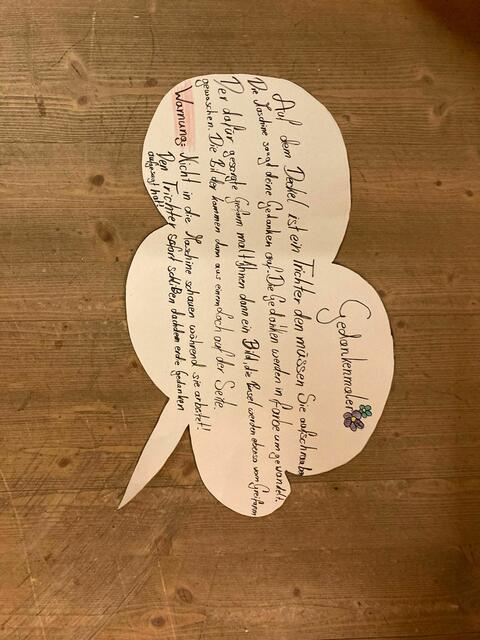 Gedankenmaler
Auf dem Deckel ist ein Trichter den müssen Sie aufschrauben
Die Maschine saugt deine Gedanken auf. Die Gedanken werden in farbe umgewandelt.
Der dafür gesorgte Greifarm malt Ihnen dann ein Bild, die Pinsel werden ebenso vom Greifarm
gewaschen. Die Bilder kommen dann aus einem Loch auf der Seite.
Warnung: Nicht in die Maschine schauen während sie arbeitet!
Den Trichter sofort schließen nachdem er die Gedanken
aufgesaugt hat!